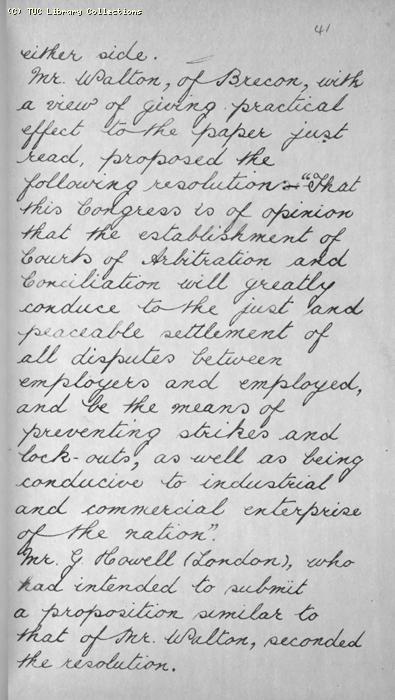 (C) TUC Library Collections
41
either side.
Mr. Walton, of Brecon, with
a view of giving practical
effect to the paper just
read, proposed the
following resolution:- "That
this Congress is of opinion
that the establishment of
Courts of Arbitration and
Conciliation will greatly
conduce to the just and
peaceable settlement of
all disputes between
employers and employed,
and be the means of
preventing strikes and
lock-outs, as well as being
conducive to industrial
and commercial enterprise
of the nation".
Mr. G Howell (London), who
had intended to submit
a proposition similar to
that of Mr. Walton, seconded
the resolution.